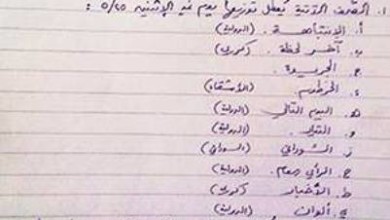 ١. الصحف الآتية يُعطل توزيعها يوم غدٍ الإثنين ٥/٢٥ :
أ. الإنتباهة. (الدولية)
ب. آخر لحظة. (كرري)
ج. الجريدة.
د. الخرطوم. (الأشقاء)
هـ. اليوم التالي (الدولية)
و. التيار. (الدولية)
ز. السوداني (السوداني)
ح. الرأي العام. (الدولية)
ط. الأخبار (كرري)
ي. ألوان. (الدولية)